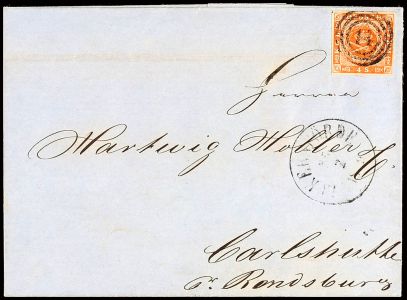 4 S
Herren
Hartwig Holler & Co
Carlshütte
pr. Rendsburg